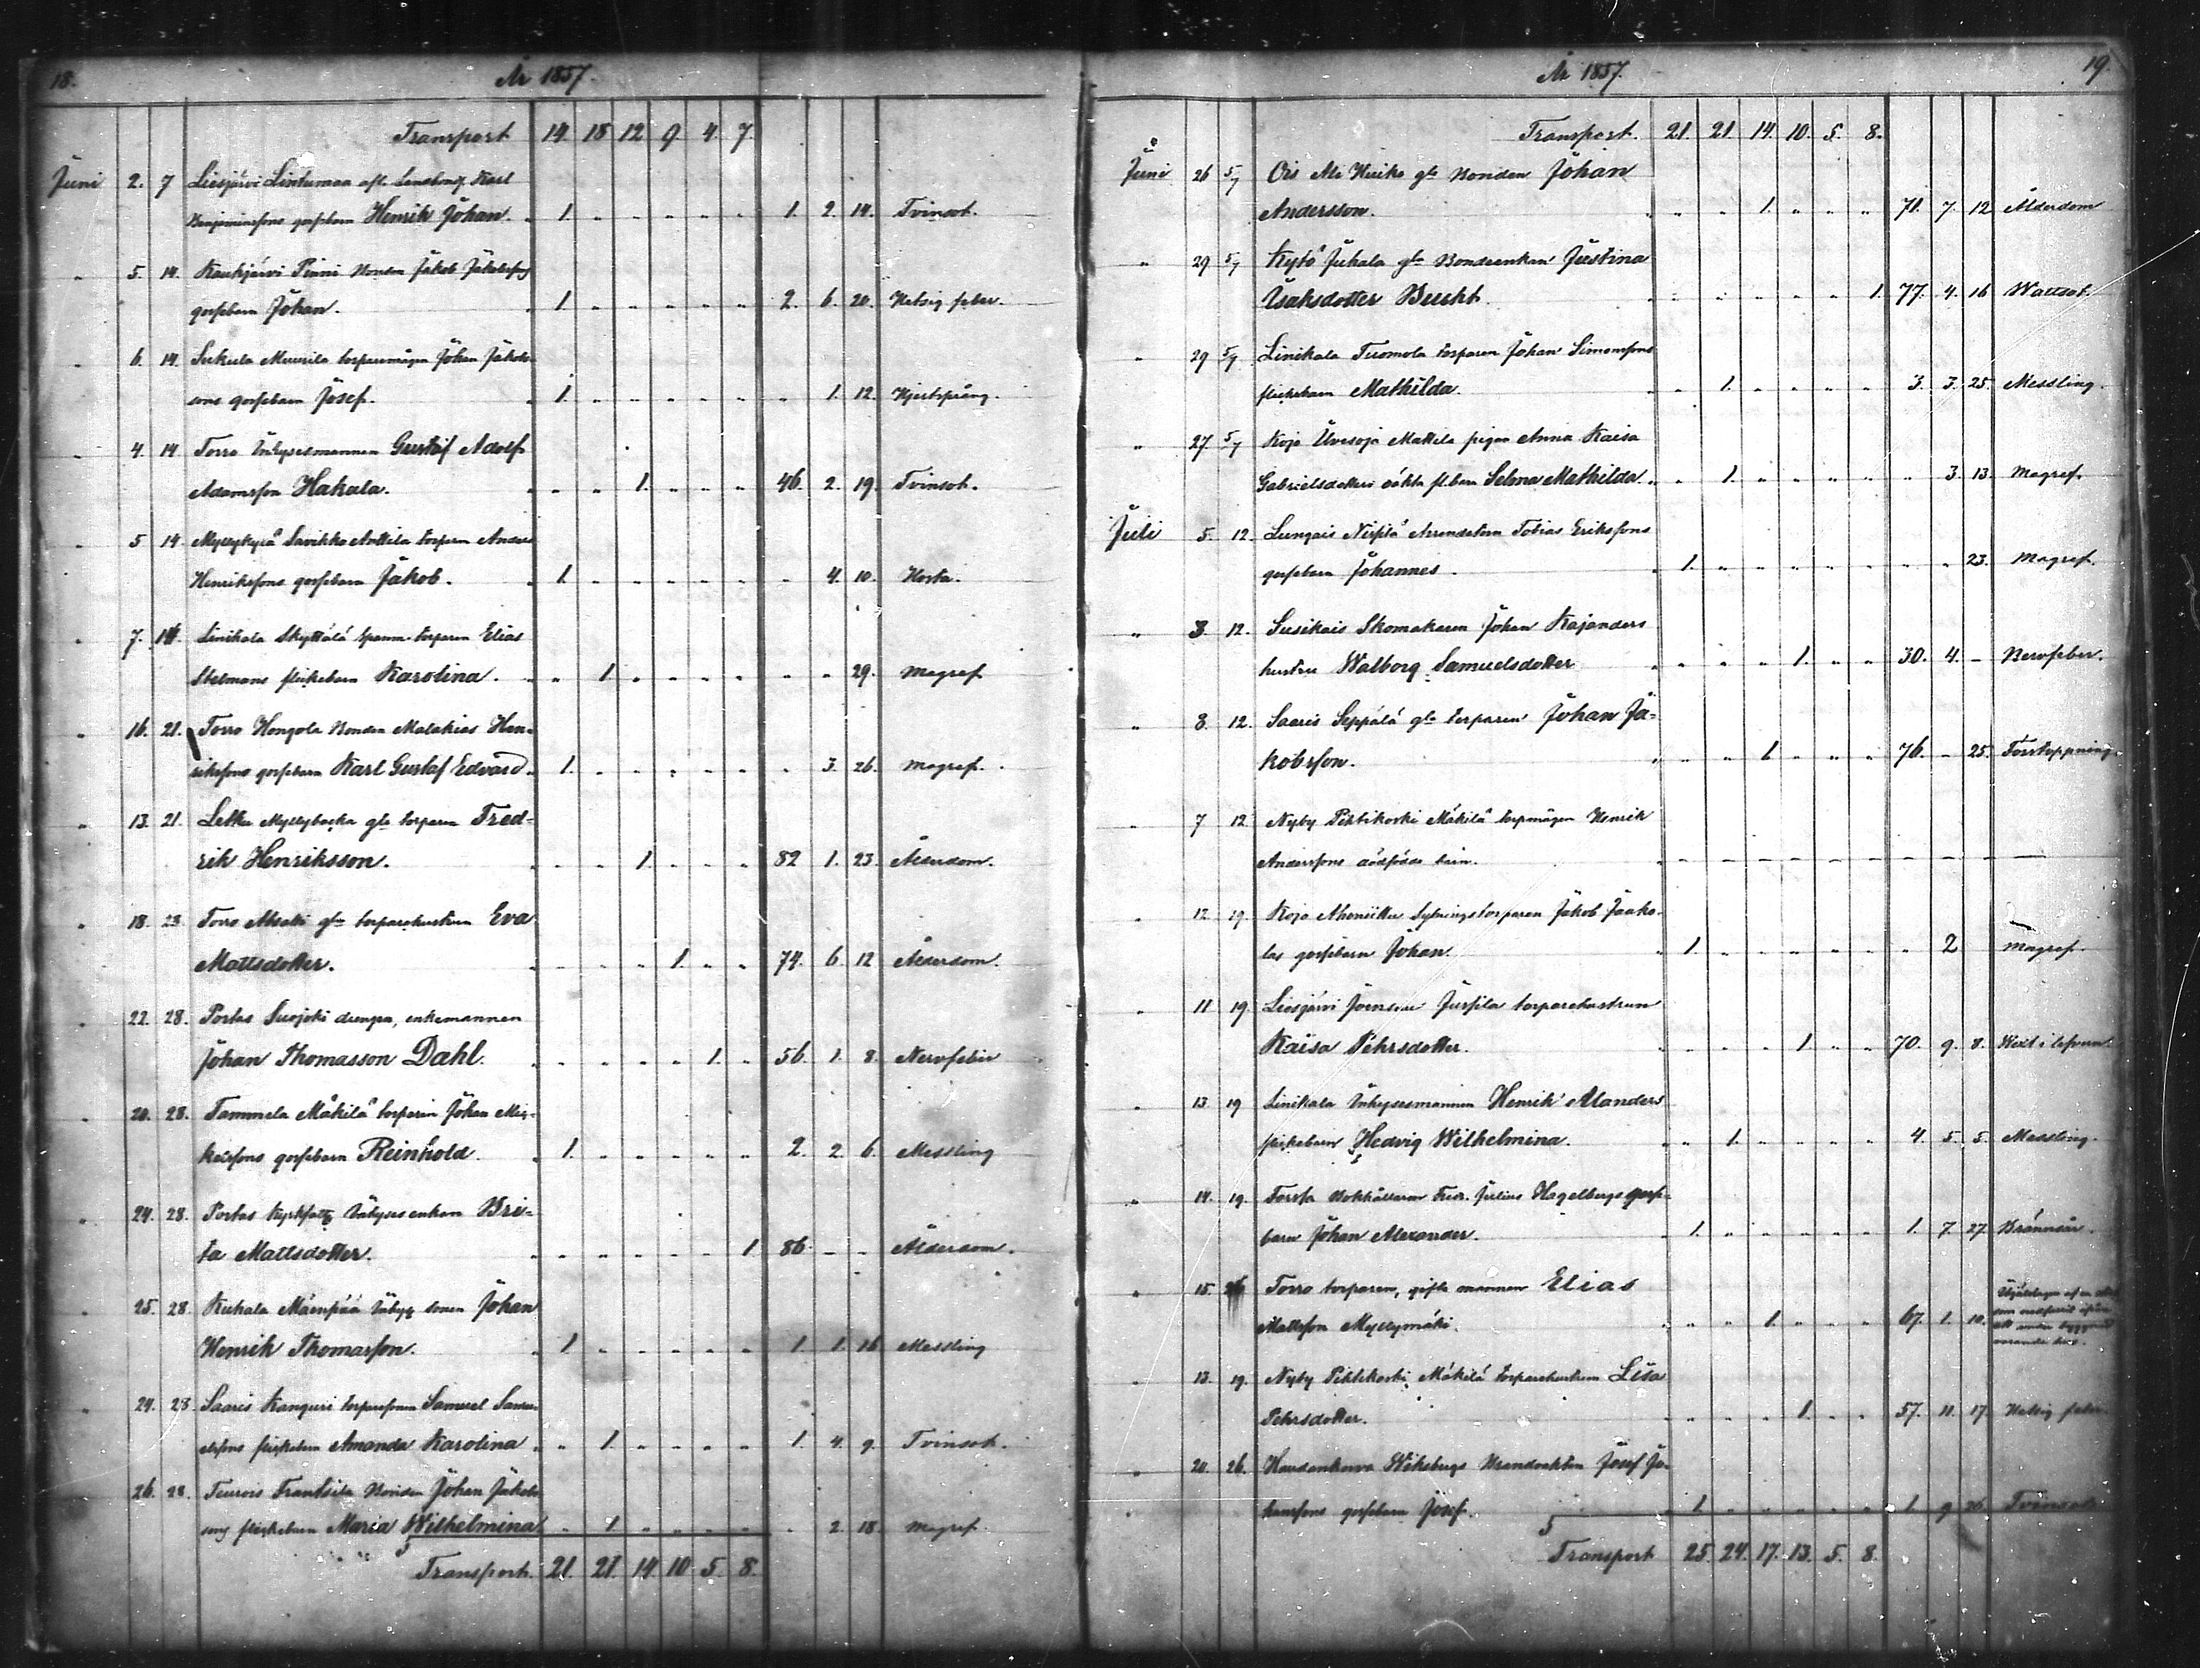 18. År 1857.
Transport 14. 18 12 9 4. 7.
Juni 2. 7 Liesjärvi Lintumaa afl. Karl
Benjaminsons gossebarn Henrik Johan. 1. 1. 2. 14. Tvinsot.
" 5. 14. Kaukjärvi Pinni Bonden Jakob Jakobsons
gossebarn Johan. 1. 2. 6. 20. Hetsig feber.
" 6. 14. Sukula Muurila torparemågen Johan Jakob-
sons gossebarn Josef. 1. " 1. 12. Hjertsprång.
" 4. 14 Torro Inhysesmannen Gustaf Adolf
Adamsson Hakala. 1. 46. 2. 19. Tvinsot.
" 5 14. Myllykylä Savikko Anttila torparen Anders
Henrikssons gossebarn Jakob. 1. " 4. 10. Hosta.
" 7. 14. Linikala Skyttälä torparen Elias
Stelmans flickebarn Karolina. 1. " " 29. Magref
" 16. 21. Torro Hongola Bonden Malakias Hen-
rikssons gossebarn Karl Gustaf Edvard. 1. " 3. 26. Magref.
" 13. 21. Letku Myllybacka gla torparen Fred-
rik Henriksson. 1. 82 1. 23. Ålderdom.
" 18. 23. Torro gla torparehustrun Eva
Mattsdotter. 1. 74. 6. 12 Ålderdom.
" 22. 28. Portas Suojoki drengen, enkemannen
Johan Thomasson Dahl. 1. 56. 1. 8. Nervfeber
" 20. 28. Tammela Mäkilä torparen Johan Mic-
kelssons gossebarn Reinhold. 1. 2. 2. 6. Messling
" 24. 28. Portas Inhyses enkan Bri-
ta Mattsdotter. 1 86. – – Ålderdom.
" 25. 28. Kuhala Mäenpää Inhys sonen Johan
Henrik Thomasson. 1 1 1 16 Messling
" 24. 28 Saaris Kanguri torparesonen Samuel Samu-
elssons flickebarn Amanda Karolina. 1. 1. 4. 9. Tvinsot.
26. 28. Teuro Frantsila Bonden Johan Jakob-
sons flickebarn Maria Wilhelmina 1. " 2 18. Magref.
Transport. 21. 21. 14. 10. 5. 8.
År 1857. 19.
Transport. 21. 21. 14. 10. 5. 8.
Juni 26 5/7 Ois gla Bonden Johan
Andersson. 1. 71. 7. 12 Ålderdom
" 29 5/7 Kytö Juhala gla Bondeenkan Justina
Isaksdotter 1. 77. 4. 16 Wattsot.
" 29 5/7 Linikala Tuomola torparen Johan Simonssons
flickebarn Mathilda. 1. 3. 3. 25. Messling.
" 27 5/7 Kojo Uvesoja Mattila pigan Anna Kaisa
Gabrielsdotters oäkta fl.barn Selma Mathilda. 1. " 3. 13. Magref.
Juli 5. 12. Lungais Arrendatorn Tobias Erikssons
gossebarn Johannes. 1. " " 23. Magref.
" 3. 12. Susikais Skomakaren Johan Kajanders
hustru Walborg Samuelsdotter 1. 30. 4. – Nervfeber.
" 8. 12. Saaris Seppälä gla torparen Johan Ja-
kobsson. 1. 76. – 25. Förstoppning
" 7 12 Nyby Pehtikoski Mäkilä torpmågen Henrik
Anderssons dödfödde
" 12 19. Kojo Sytningstorparen Jakob Jaako-
las gossebarn Johan. 1. " 2 Magref.
" 11 19. Liesjärvi Jussila torparehustrun
Kaisa Pehrsdotter. 1. 70. 9. 8. Wext i lefvern
" 13. 19 Linikala Inhysesmannen Henrik Alanders
flickebarn Hedvig Wilhelmina. 1. 4. 5. 5. Messling.
" 14. 19. Forssa Bokhållaren Fred. Julius Hagelbergs gosse-
barn Johan Alexander. 1. 1. 7. 27. Brännsår.
" 15. 26 Torro torparen, gifta mannen Elias
Mattsson Myllymäki. 1. 67. 1. 10.
" 13. 19. Nyby Pehtikoski Mäkilä torparehustrun Lisa
Pehrsdotter. 1. 57. 11. 17. Hetsig feber
" 20. 26. Haudankorva Wiksbergs Josef Jo-
hanssons gossebarn Josef. 1. 1. 9 26. Tvinsot.
Transport 25. 24. 17. 13. 5. 8.